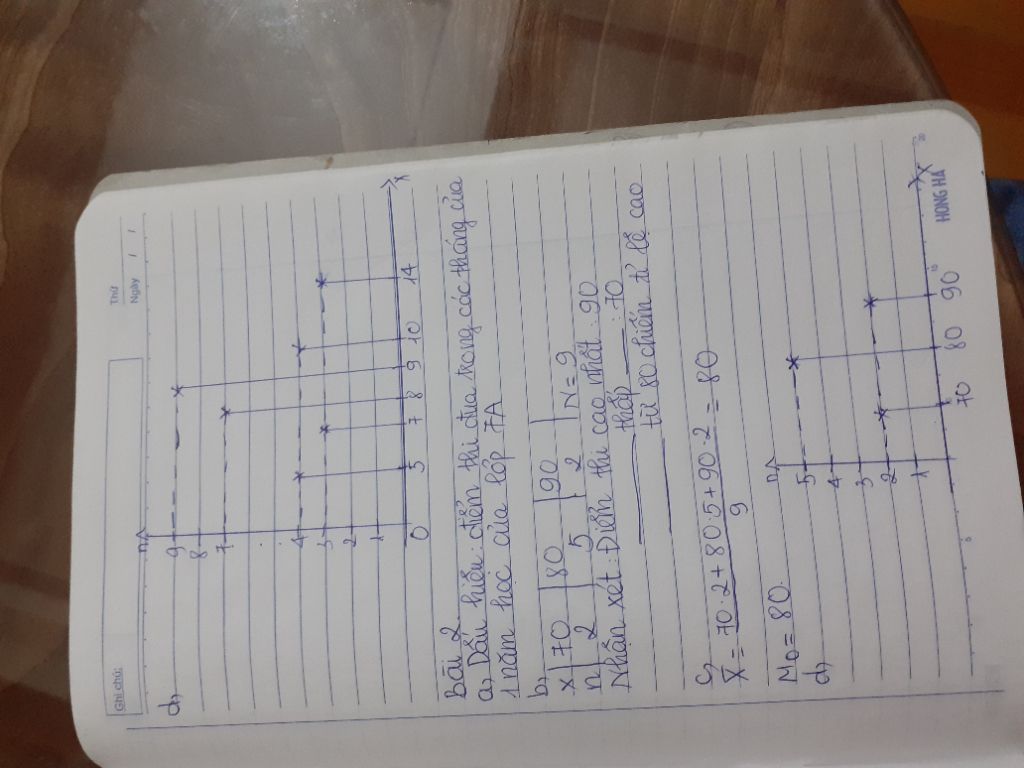 Ghi chú:
Thứ
Ngày / /
d,
n
9
8
7
4
3
2
1
0 5 7 8 9 10 14 x
Bài 2
a, Dấu hiệu: điểm thi đua trong các tháng của
1 năm học của lớp 7A
b,
x 70 80 90
n 2 5 2 N = 9
Nhận xét: Điểm thi cao nhất: 90
thấp : 70
từ 80 chiếm tỉ lệ cao
c,
X = 70 . 2 + 80 . 5 + 90 . 2 = 80
9
M0 = 80.
d,
n
5
4
3
2
1
70 80 90 x
HONG HA